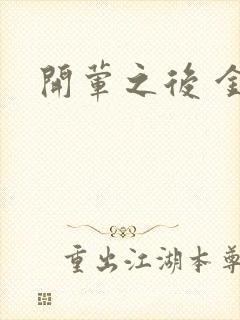 開葷之後金
重出江湖本尊